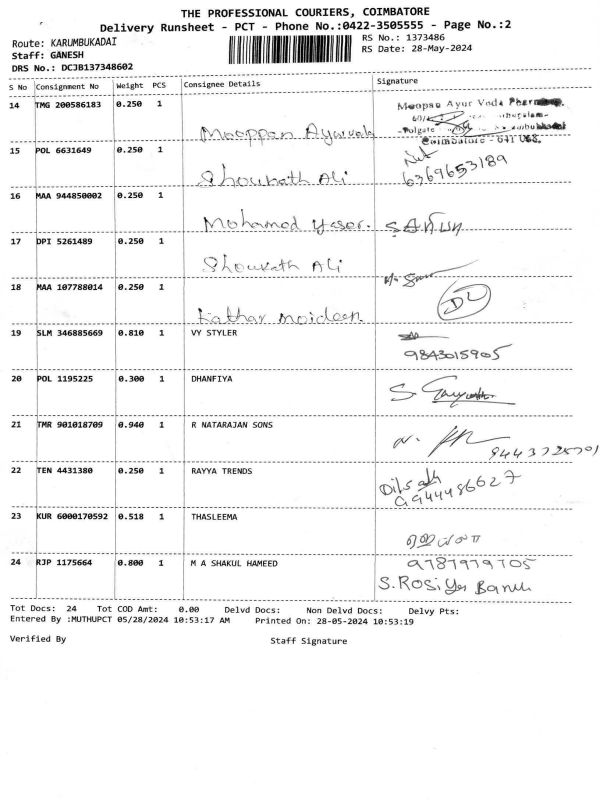 THE PROFESSIONAL COURIERS, COIMBATORE
Delivery Runsheet - PCT - Phone No.:0422-3505555 - Page No.:2
Route: KARUMBUKADAI
RS No.: 1373486
Staff: GANESH
RS Date: 28-May-2024
DRS No.: DCJB137348602
S No Consignment No Weight PCS Consignee Details Signature
14 TMG 200586183 0.250 1 Mooppan Ayurveda
Moopan Ayur Veda
Coimbatore - 641
15 POL 6631649 0.250 1 Shoukath Ali
6369653189
16 MAA 944850002 0.250 1 Mohamed Yaser.
17 DPI 5261489 0.250 1 Shoukath Ali
18 MAA 107788014 0.250 1 Kathar moideen
19 SLM 346885669 0.810 1 VY STYLER
9843015905
20 POL 1195225 0.300 1 DHANFIYA
S.
21 TMR 901018709 0.940 1 R NATARAJAN SONS
22 TEN 4431380 0.250 1 RAYYA TRENDS
9944486627
23 KUR 6000170592 0.518 1 THASLEEMA
24 RJP 1175664 0.800 1 M A SHAKUL HAMEED
9787979705
S.ROSiya Banu
Tot Docs: 24 Tot COD Amt: 0.00 Delvd Docs: Non Delvd Docs: Delvy Pts:
Entered By :MUTHUPCT 05/28/2024 10:53:17 AM Printed On: 28-05-2024 10:53:19
Verified By Staff Signature